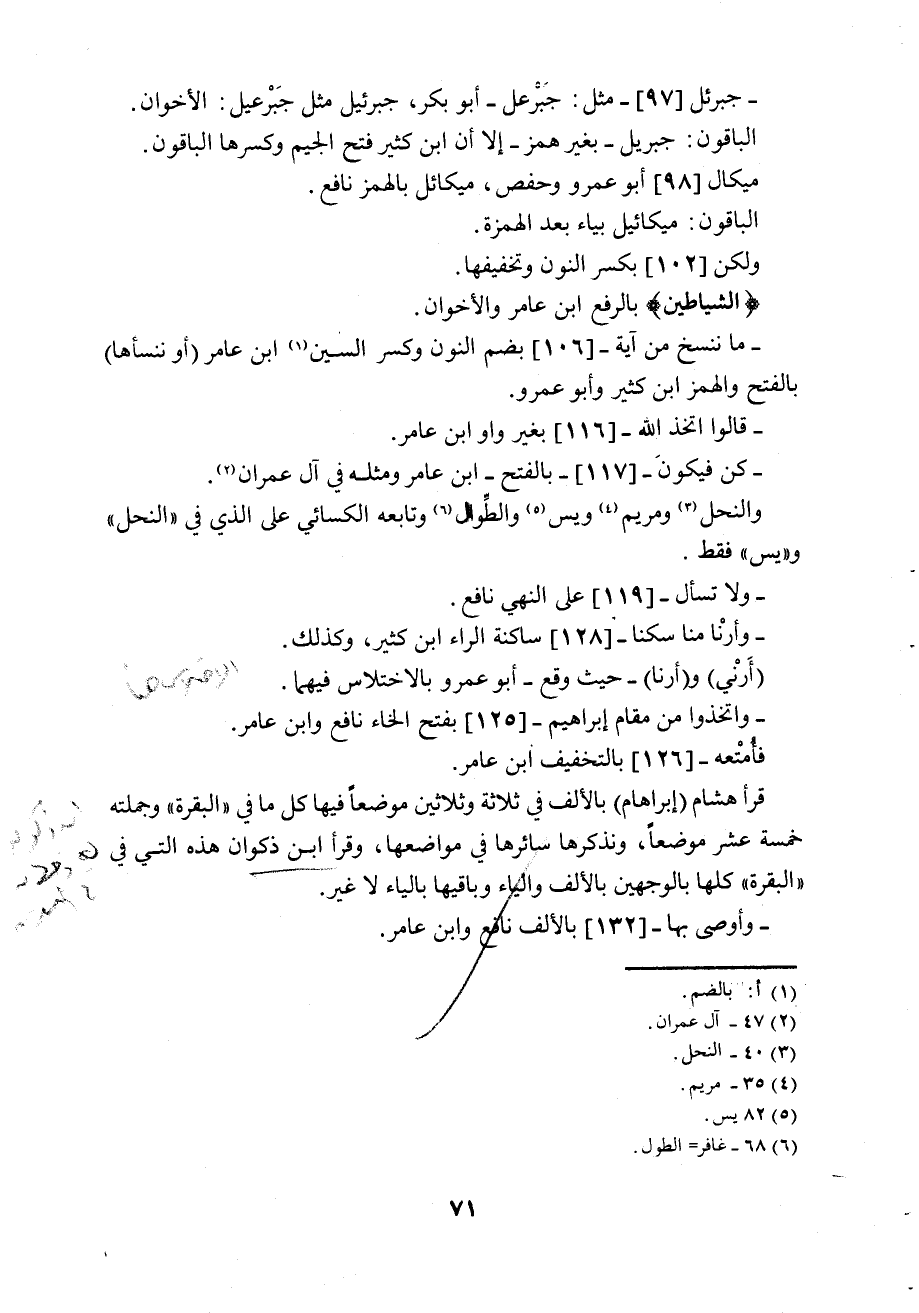 ـ جبرئل [٩٧] ـ مثل: جَبْرعل ـ أبو بكر، جبرئيل مثل جَبْرعيل: الأخوان.
الباقون: جبريل ـ بغير همز ـ إلا أن ابن كثير فتح الجيم وكسرها الباقون.
ميكال [٩٨] أبو عمرو وحفص، ميكائل بالهمز نافع.
الباقون: ميكائيل بياء بعد الهمزة.
ولكن [١٠٢] بكسر النون وتخفيفها.
﴿الشياطين﴾ بالرفع ابن عامر والأخوان.
ـ ما ننسخ من آية ـ [١٠٦] بضم النون وكسر السين(١) ابن عامر (أو ننسأها)
بالفتح والهمز ابن كثير وأبو عمرو.
ـ قالوا اتخذ الله ـ [١١٦] بغير واو ابن عامر.
ـ كن فيكونَ ـ [١١٧] ـ بالفتح ـ ابن عامر ومثله في آل عمران(٢).
والنحل(٣) ومريم(٤) ويس(٥) والطِّوال(٦) وتابعه الكسائي على الذي في «النحل»
و«يس» فقط .
ـ ولا تسأل ـ [١١٩] على النهي نافع.
ـ وأرنْا منا سكنا ـ [١٢٨] ساكنة الراء ابن كثير، وكذلك.
(أَرنْي) و(أرنا) ـ حيث وقع ـ أبو عمرو بالاختلاس فيهما.
ـ واتخذوا من مقام إبراهيم ـ [١٢٥] بفتح الخاء نافع وابن عامر.
فأُمْتعه ـ [١٢٦] بالتخفيف ابن عامر.
قرأ هشام (إبراهام) بالألف في ثلاثة وثلاثين موضعاً فيها كل ما في «البقرة» وجملته
خمسة عشر موضعاً، ونذكرها سائرها في مواضعها، وقرأ ابن ذكوان هذه التي في
«البقرة» كلها بالوجهين بالألف والياء وباقيها بالياء لا غير.
ـ وأوصى بها ـ [١٣٢] بالألف نافع وابن عامر.
(١) أ: بالضم.
(٢) ٤٧ ـ آل عمران.
(٣) ٤٠ ـ النحل.
(٤) ٣٥ ـ مريم.
(٥) ٨٢ يس.
(٦) ٦٨ ـ غافر= الطول.
٧١